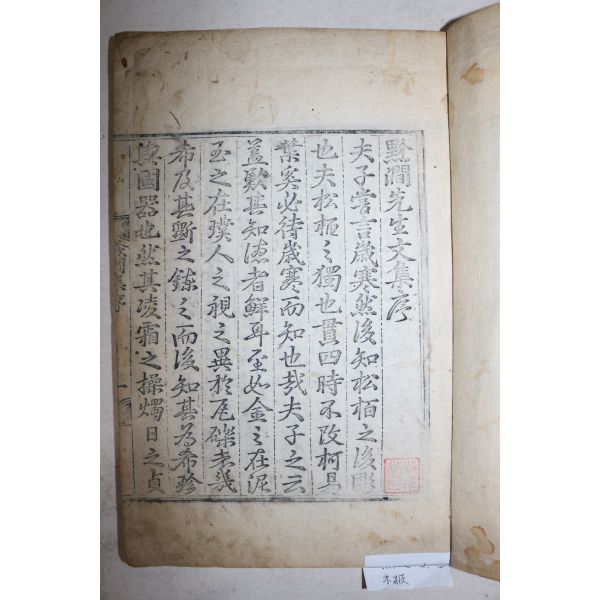 黔澗先生文集序
夫子嘗言歲寒然後知松栢之後彫
也夫松栢之獨也貫四時不改柯易
葉奚必待歲寒而知也哉夫子之云
盖歎其知德者鮮耳至如金之在泥
玉之在璞人之視之異於瓦礫者幾
希及其斲之鍊之而後知其為希珍
與國器也然其凌霜之操燭日之貞
黔澗集序
一
木板